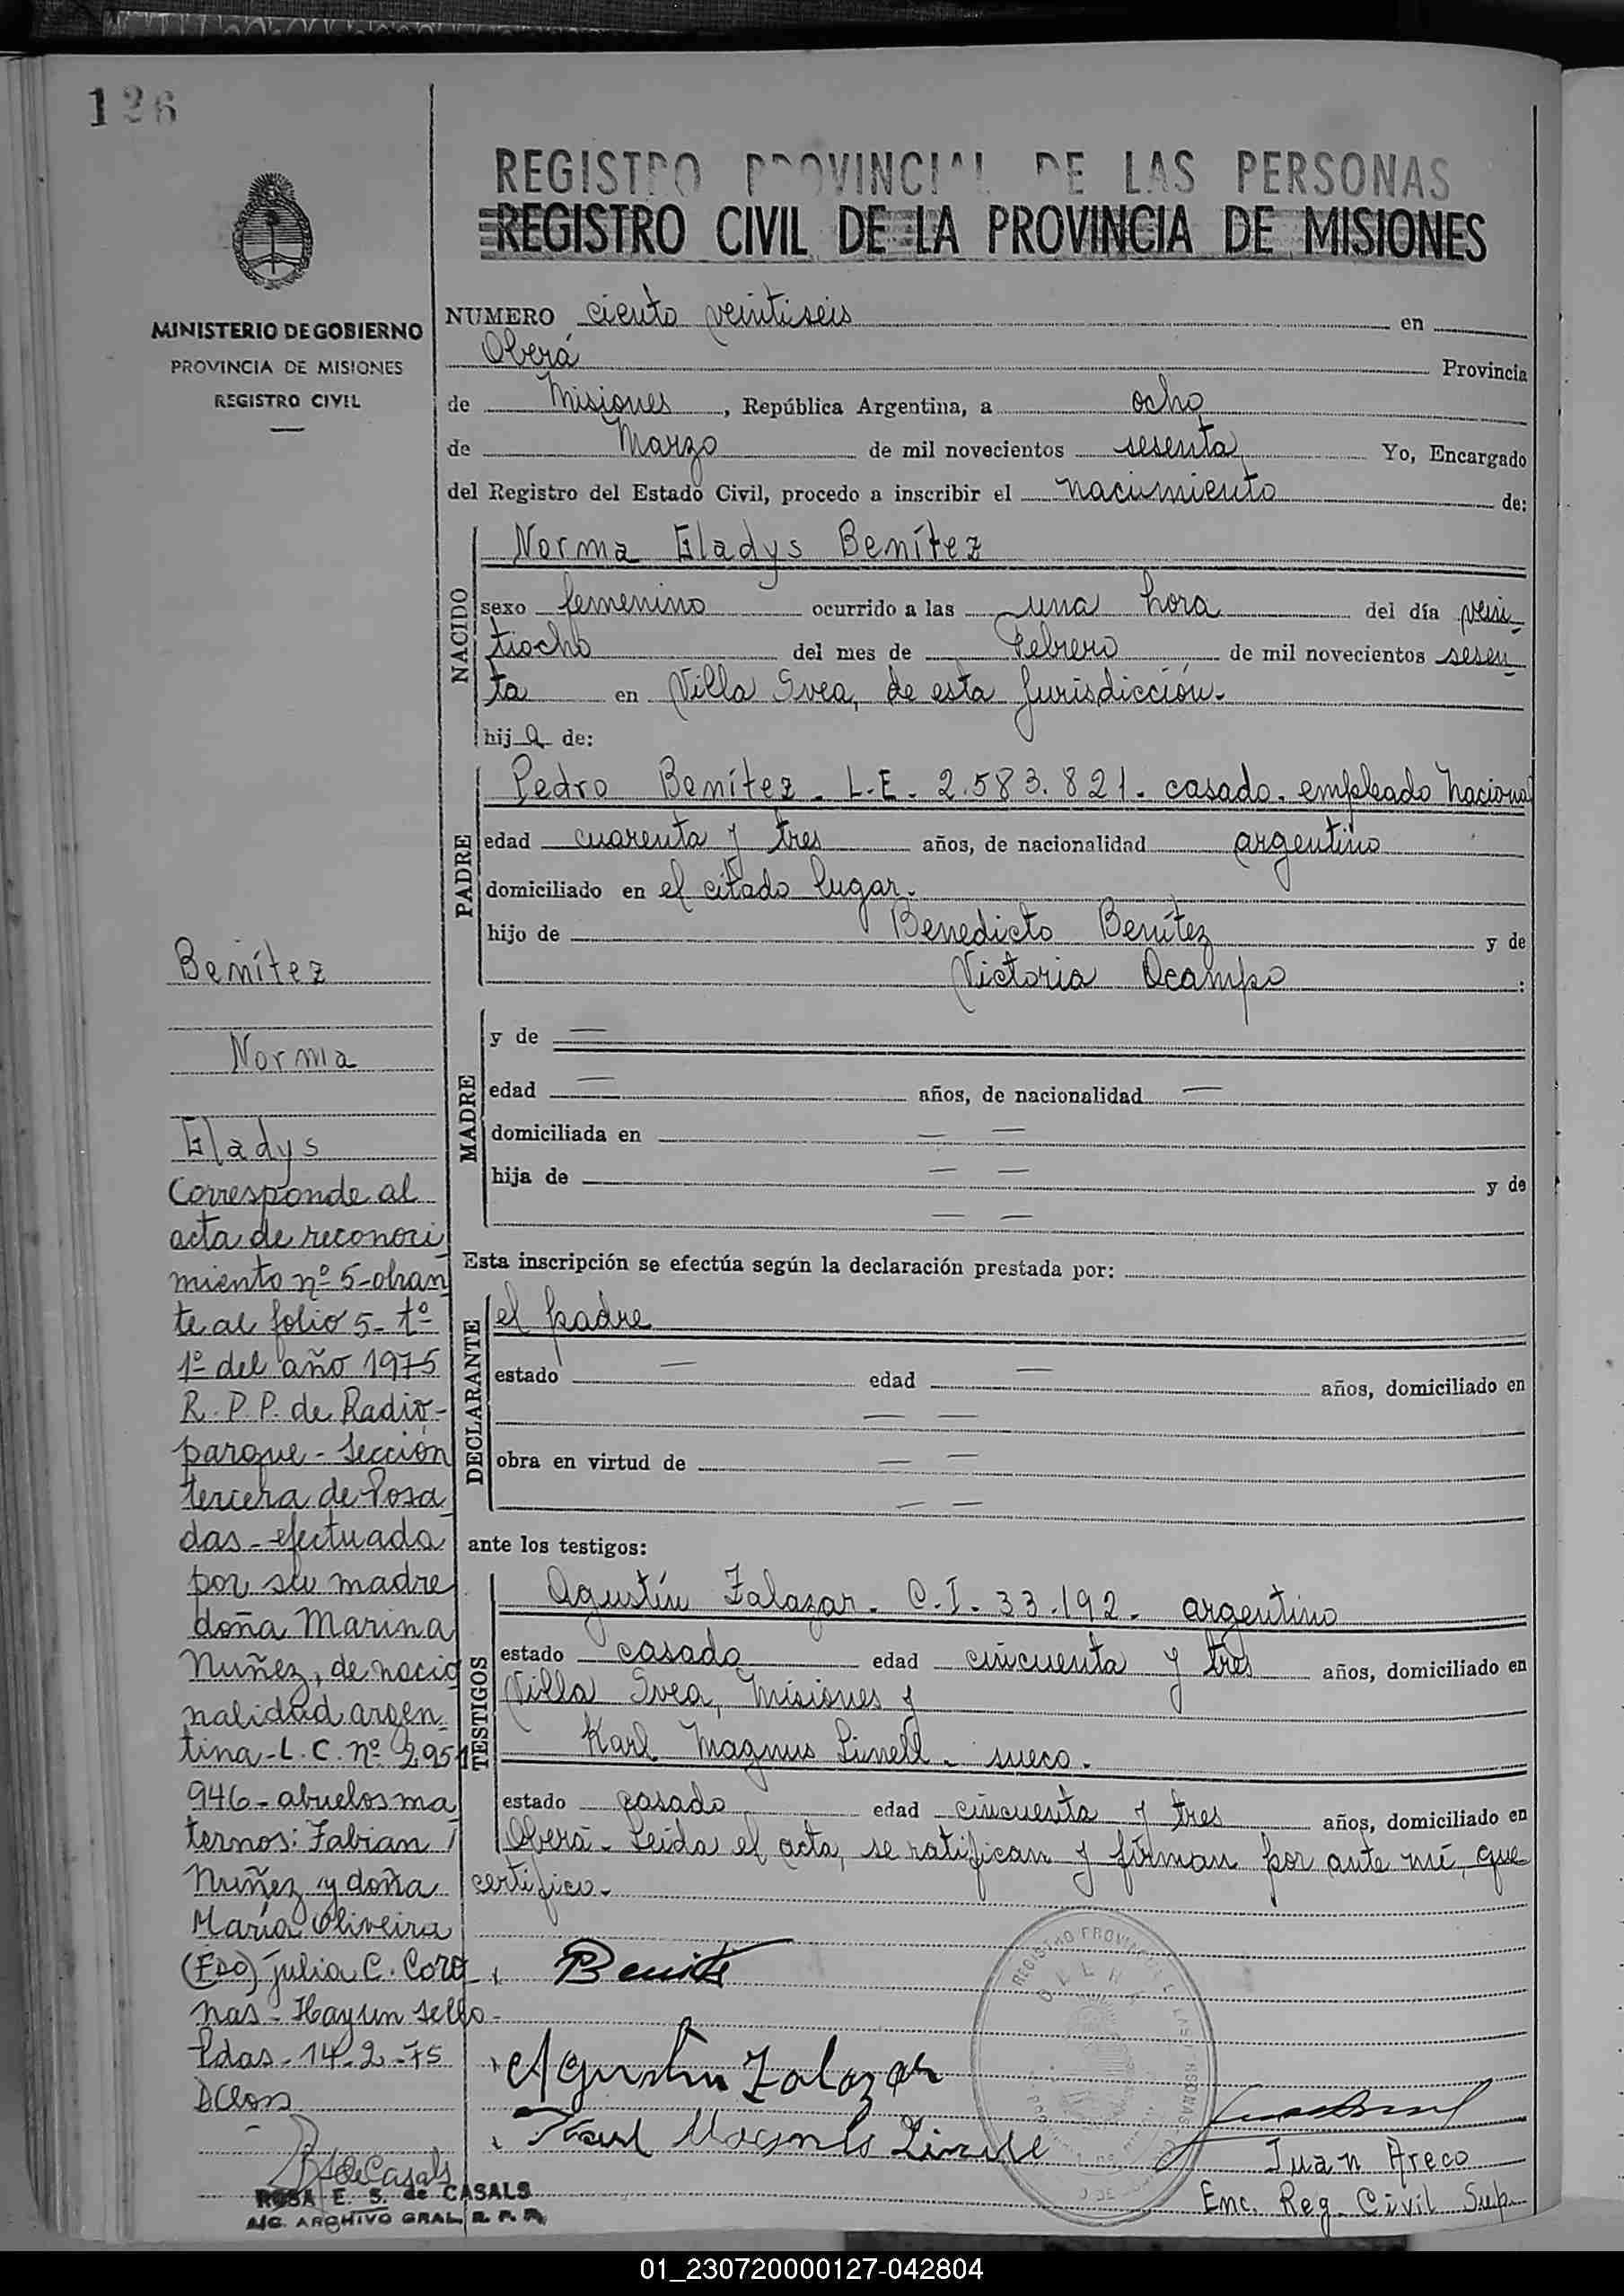 126
REGISTRO PROVINCIAL DE LAS PERSONAS
REGISTRO CIVIL DE LA PROVINCIA DE MISIONES
MINISTERIO DE GOBIERNO
PROVINCIA DE MISIONES
REGISTRO CIVIL
NUMERO ciento veintiseis en
Oberá Provincia
de Misiones, República Argentina, a ocho
de Marzo de mil novecientos sesenta Yo, Encargado
del Registro del Estado Civil, procedo a inscribir el nacimiento de:
NACIDO
Norma Gladys Benítez
sexo femenino ocurrido a las una hora del día vein
tiocho del mes de Febrero de mil novecientos sesen
ta en Villa Svea, de esta Jurisdicción.
hija de:
PADRE
Pedro Benítez - L.E. 2.583.821. casado. empleado Nacional
edad cuarenta y tres años, de nacionalidad argentino
domiciliado en el citado lugar.
hijo de Benedicto Benítez y de
Victoria Ocampo :
MADRE
y de —
edad — años, de nacionalidad —
domiciliada en — —
hija de — — y de
— —
Esta inscripción se efectúa según la declaración prestada por:
DECLARANTE
el padre
estado — edad — años, domiciliado en
— —
obra en virtud de — —
— —
ante los testigos:
TESTIGOS
Agustín Zalazar - C.I. 33.192 - argentino
estado casado edad cincuenta y tres años, domiciliado en
Villa Svea, Misiones y
Karl Magnus Linell - sueco.
estado casado edad cincuenta y tres años, domiciliado en
Oberá - Leída el acta, se ratifican y firman por ante mí, que
certifico.
Benítez
Norma
Gladys
Corresponde al
acta de reconoci
miento nº 5-obran
te al folio 5- tº
1º del año 1975
R.P.P. de Radio-
parque - sección
tercera de Posa
das - efectuada
por su madre
doña Marina
Nuñez, de nacio
nalidad argen
tina - L.C. nº 2.951
946 - abuelos ma
ternos: Fabian
Nuñez y doña
María Oliveira
(FDO) Julia C. Coro
nas - Hay un sello -
Pdas - 14-2-75
Benitez
Agustin Zalazar
Karl Magnus Linell
Juan Areco
Enc. Reg. Civil Sup.
ROSA E. S. de CASALS
ARCHIVO GRAL. R. P. P.
01_230720000127-042804